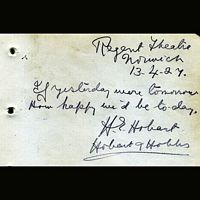 Regent Theatre
Norwich
13.4.27.
If yesterday were tomorrow
How happy we'd be to-day.
H.E. Hobart
Hobart & Hobbs